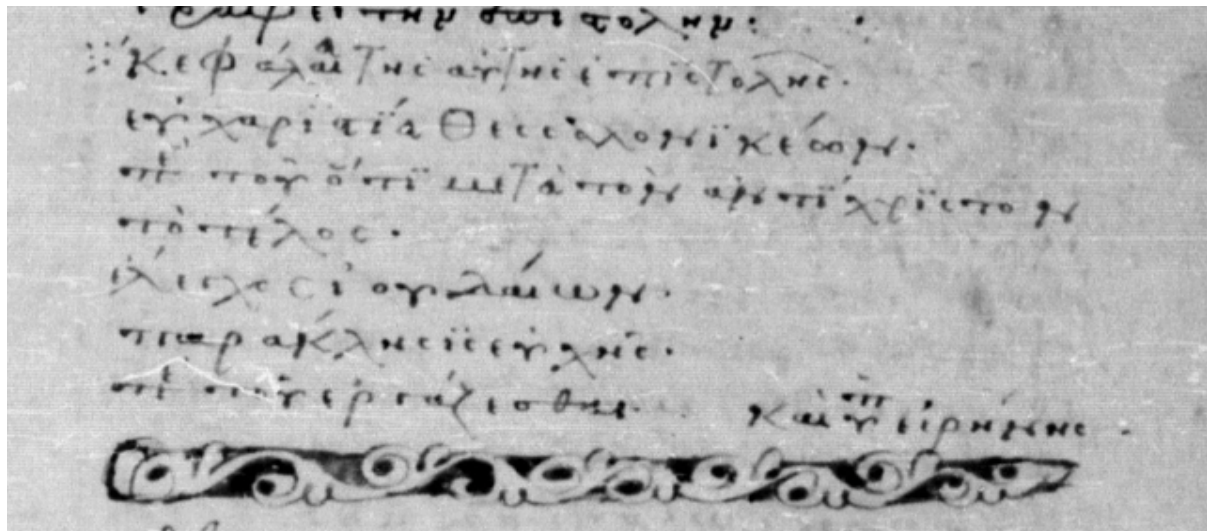 γράφει τὴν ἐπιστολήν:
Κεφάλαια τῆς αὐτῆς ἐπιστολῆς.
εὐχαριστία Θεσσαλονικέων.
περὶ τοῦ ὅτι μετὰ τὸν ἀντίχριστον
τὸ τέλος.
ἔλεγχος ἰουδαίων.
παράκλησις εὐχῆς.
περὶ τοῦ ἐργάζεσθαι καὶ ὑπ εἰρήνης.